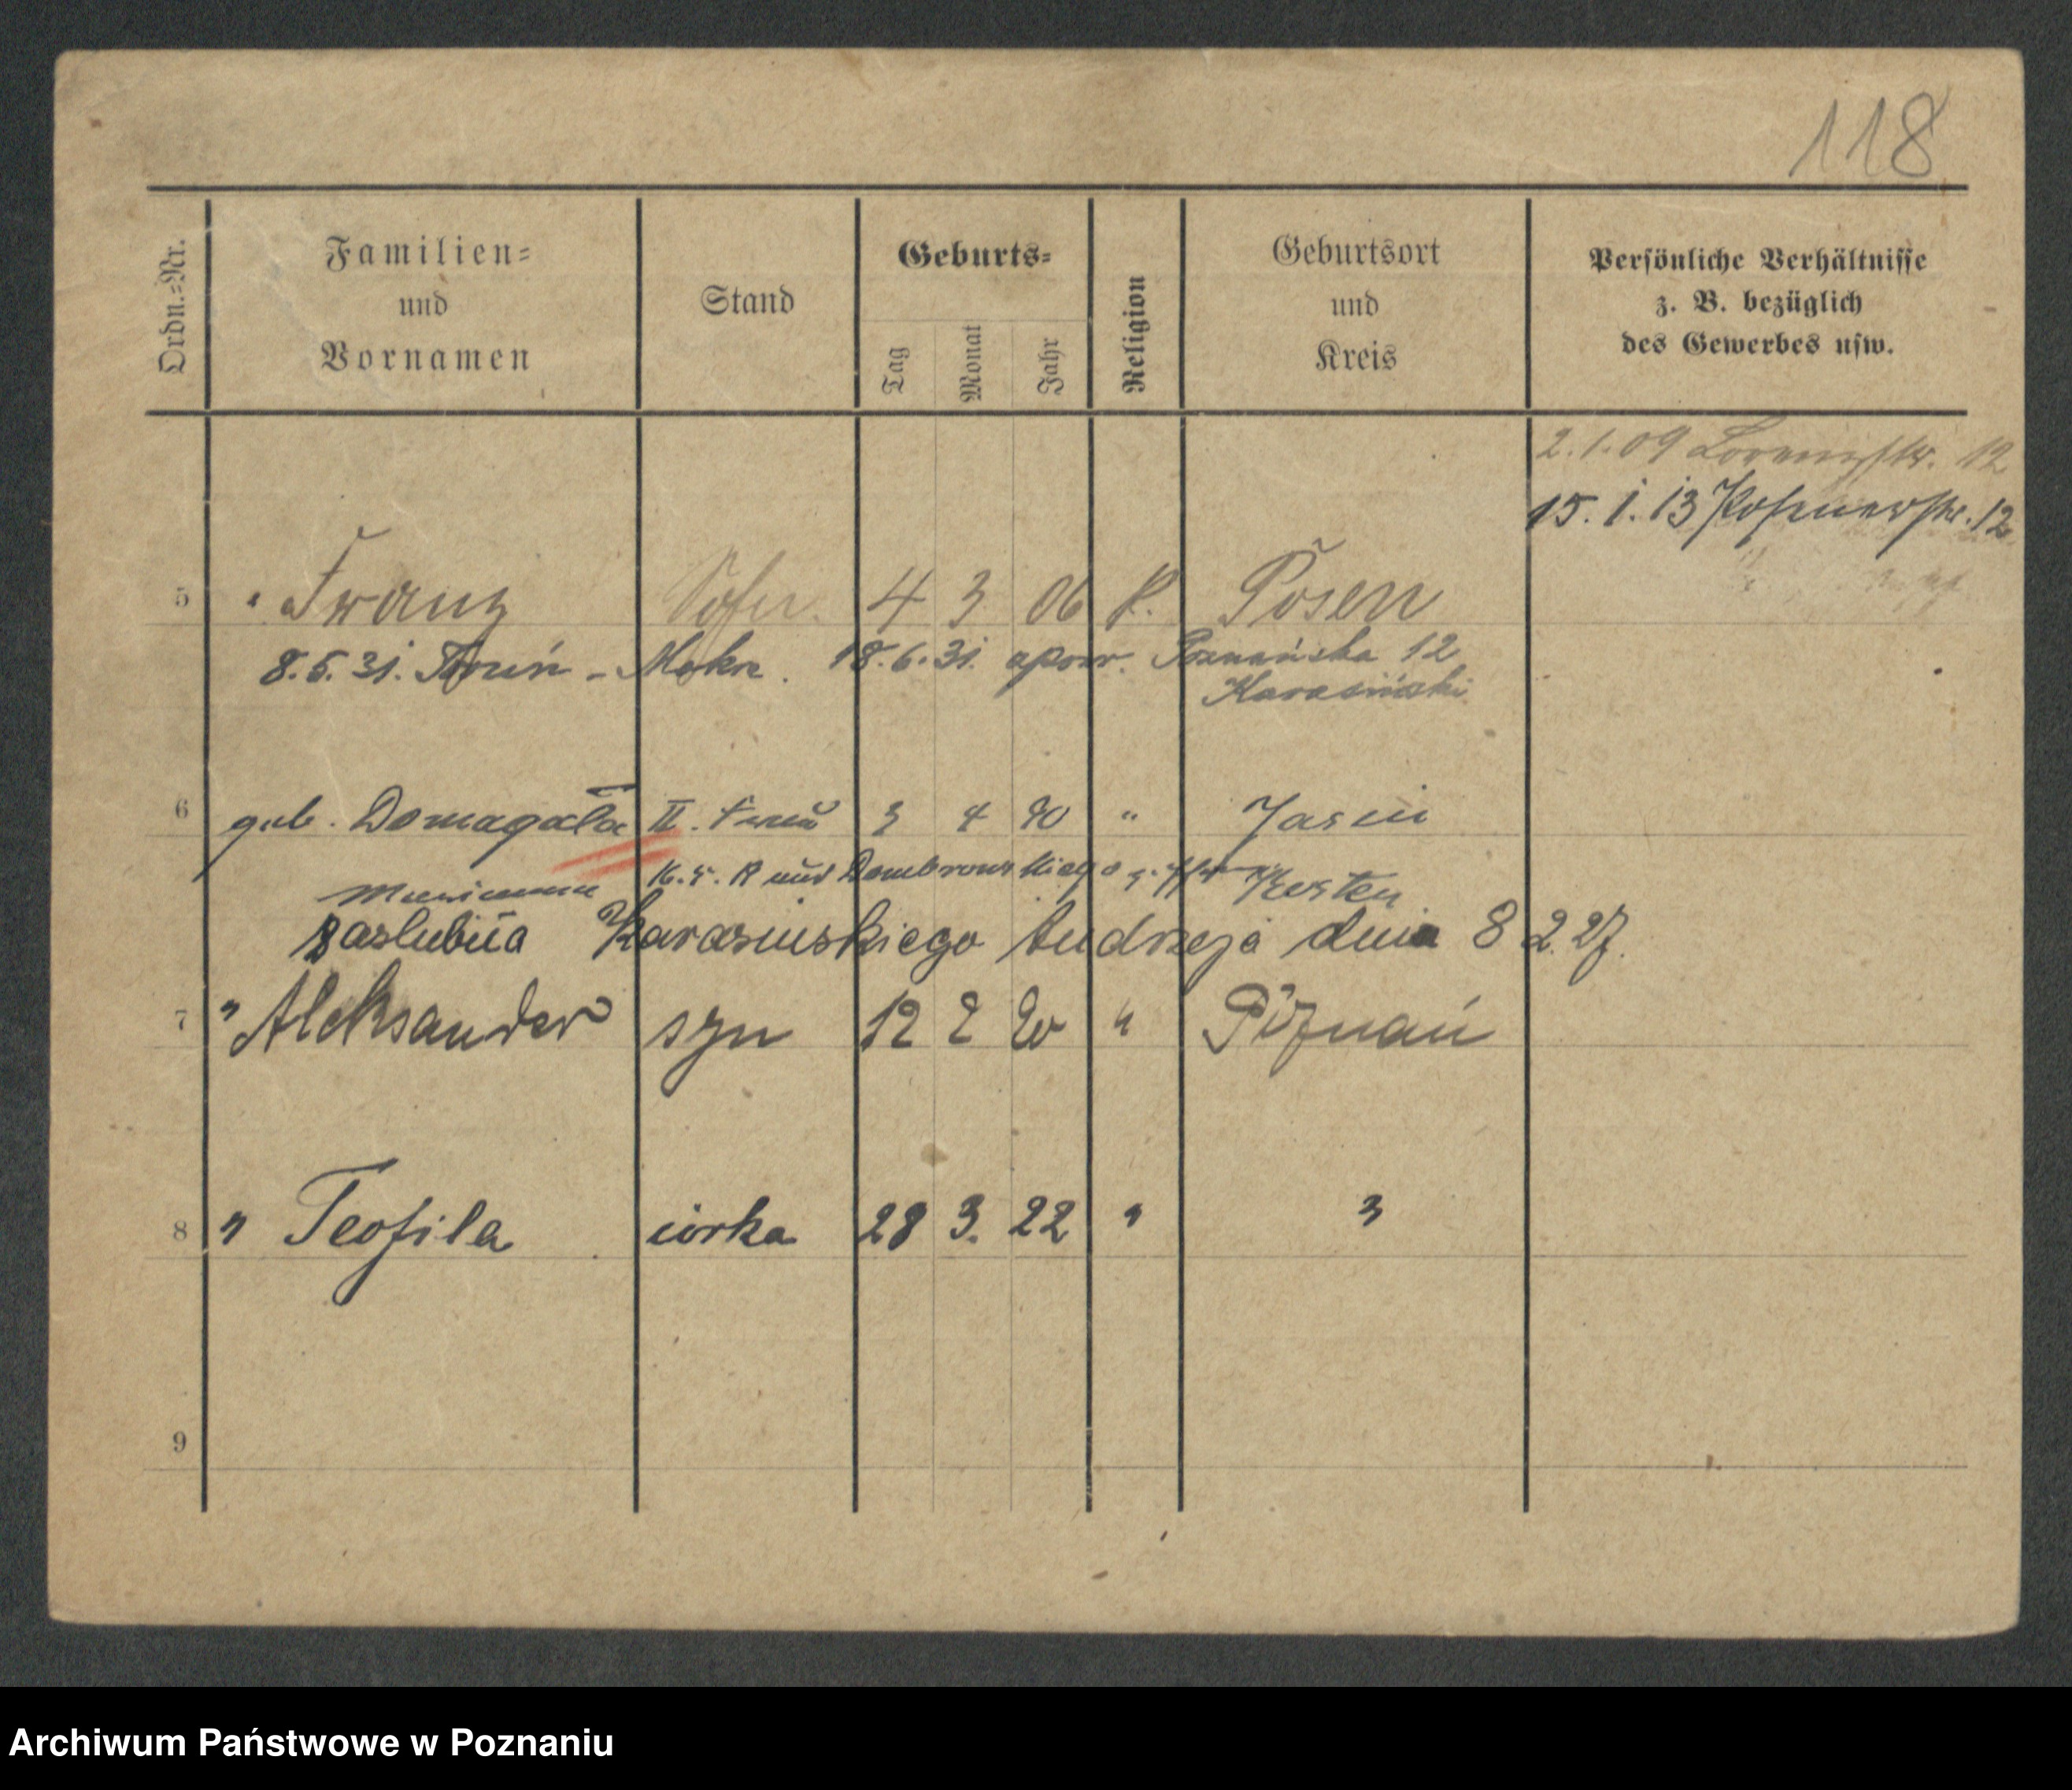 118
Ordn.-Nr.
Familien-
und
Vornamen
Stand
Geburts-
Tag
Monat
Jahr
Religion
Geburtsort
und
Kreis
Persönliche Verhältnisse
z. B. bezüglich
des Gewerbes usw.
2.1.09 Lorenzstr. 12
15.1.13 Posenerstr. 12
5 " Franz Sohn 4 3 06 k. Posen
8.5.31. Toruń - Mokre. 18.6.31. apow. Poznańska 12
Karasiński
6 geb. Domagała II. Frau 3 4 90 " Jasin
16.5. Kosten
zaslubiła Karasinskiego Andrzeja dnia 8 2. 27.
7 " Aleksander syn 12 2 20 " Poznań
8 " Teofila córka 28 3. 22 " "
9
Archiwum Państwowe w Poznaniu